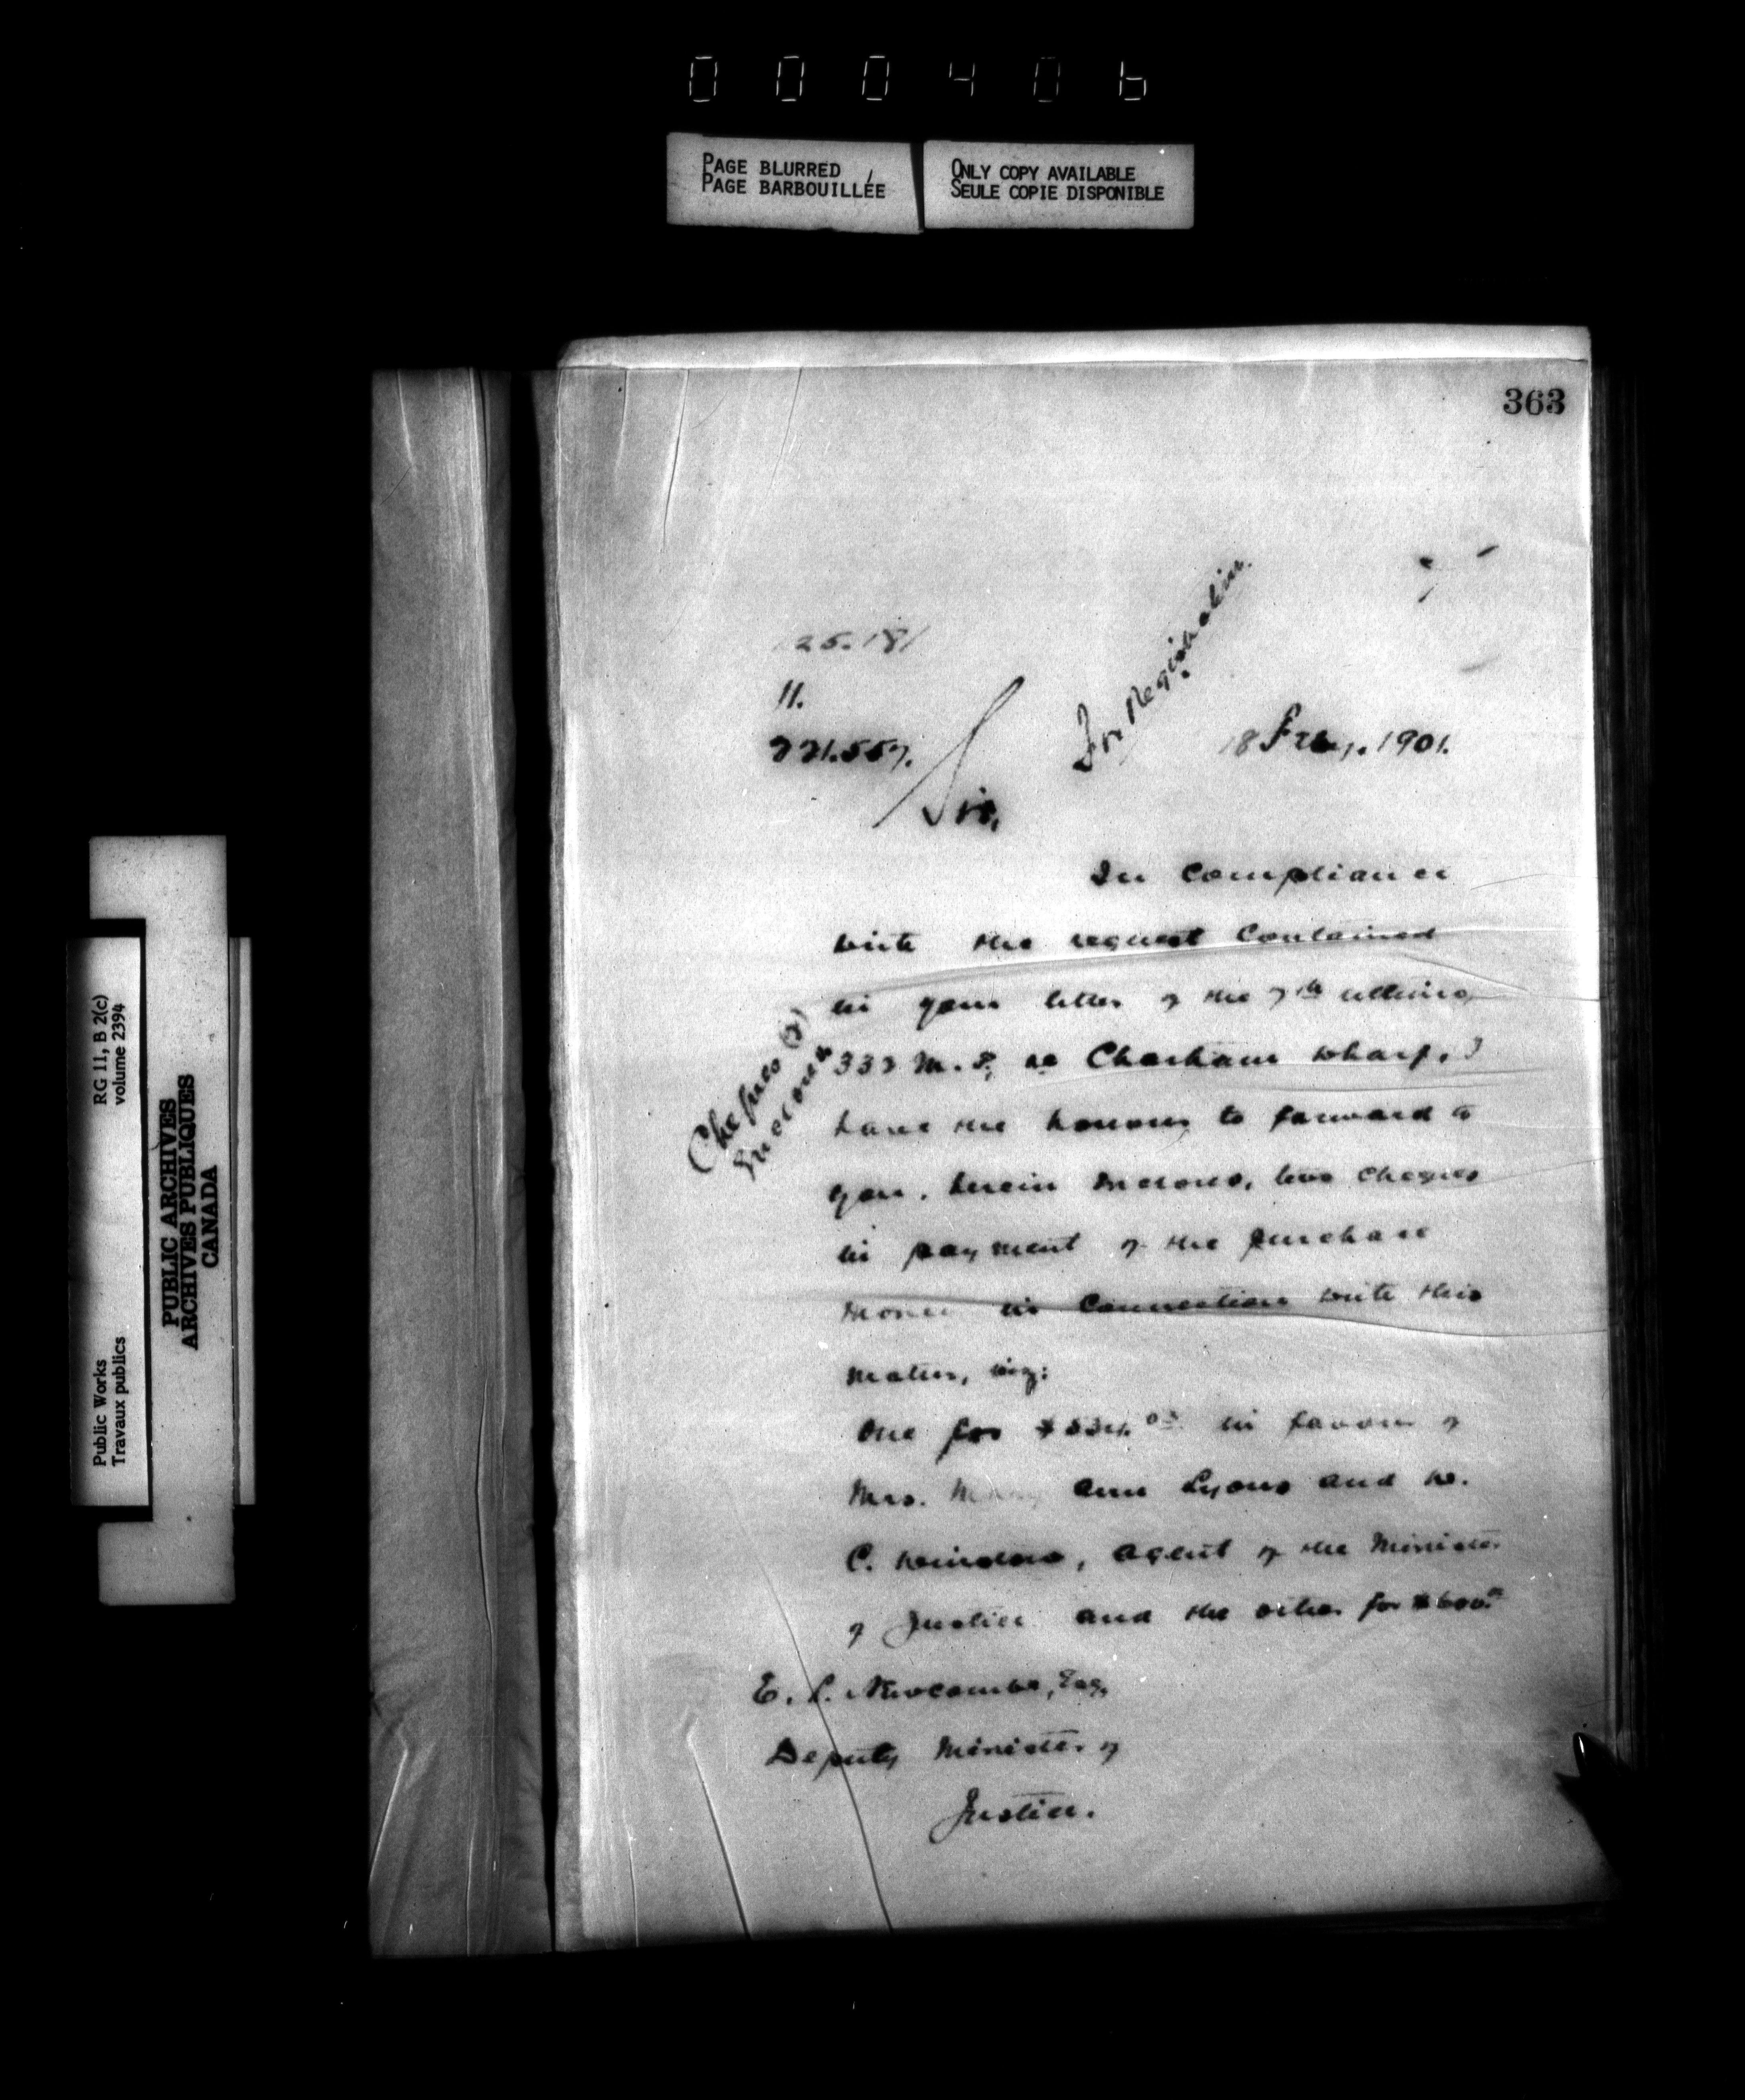 000406
PAGE BLURRED
PAGE BARBOUILLÉE
ONLY COPY AVAILABLE
SEULE COPIE DISPONIBLE
363
25.181
11.
221.557.
For Registration.
18 Feby. 1901.
Sir,
In compliance
with the request contained
in your letter of the 7th ultimo,
333 re Chatham wharf, I
have the honour to forward to
you, herein enclosed, two cheques
in payment of the purchase
money in connection with this
matter, viz:
One for in favour of
Mrs. Mary Ann Lyons and W.
C. Winslow, agent of the Minister
of Justice and the other for $600.00
Cheques (2)
Enclosed
E. L. Newcombe, Esq.
Deputy Minister of
Justice.
RG 11, B 2(c)
volume 2394
Public Works
Travaux publics
PUBLIC ARCHIVES
ARCHIVES PUBLIQUES
CANADA